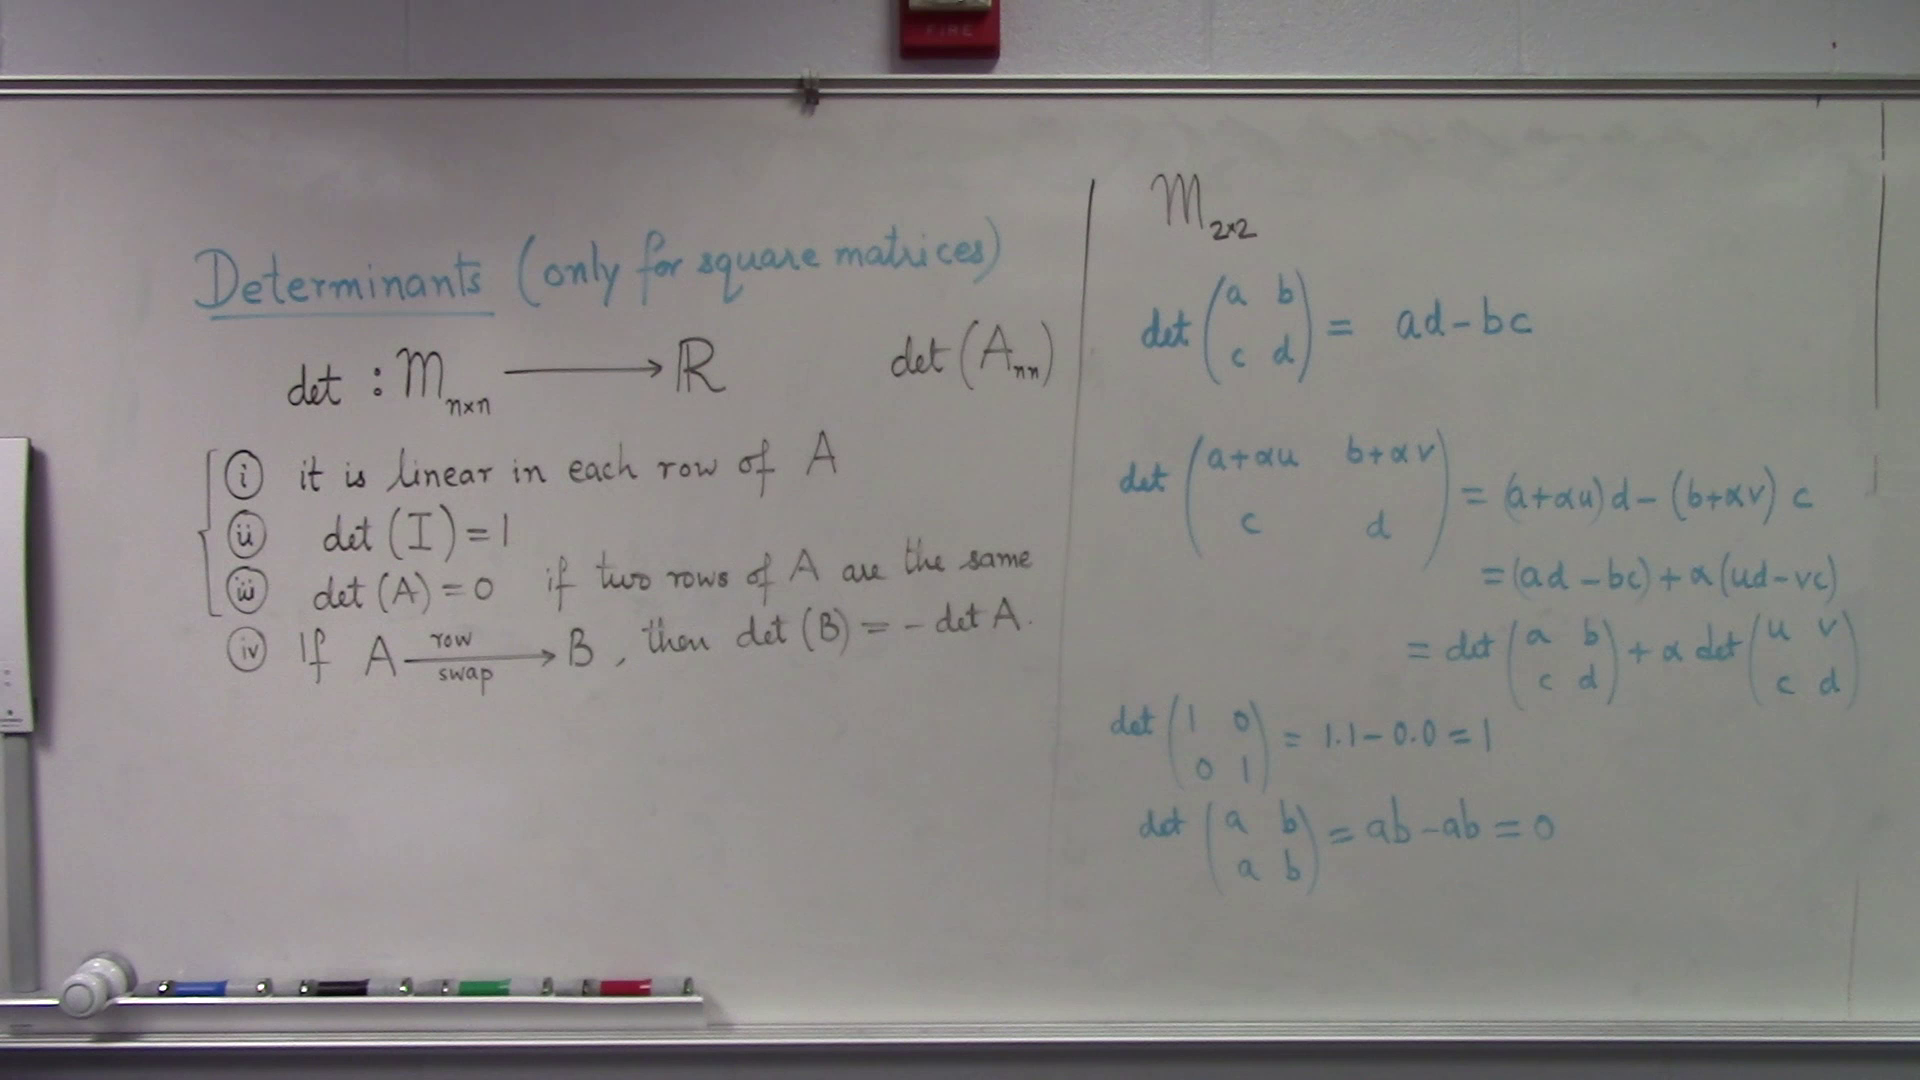 FIRE
Determinants (only for square matrices)
det : M n×n ⟶ ℝ det (A nn)
(i) it is linear in each row of A
(ii) det (I) = 1
(iii) det (A) = 0 if two rows of A are the same
(iv) If A row swap ⟶ B, then det (B) = - det A.
M 2×2
det (a b
c d) = ad - bc
det (a+αu b+αv
c d) = (a+αu)d - (b+αv) c
= (ad - bc) + α (ud - vc)
= det (a b
c d) + α det (u v
c d)
det (1 0
0 1) = 1.1 - 0.0 = 1
det (a b
a b) = ab - ab = 0